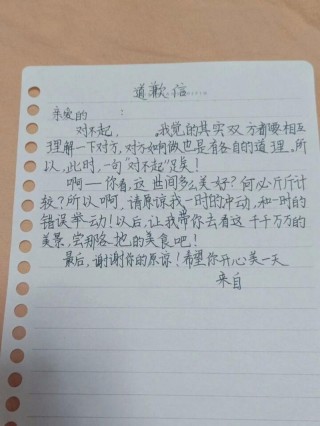 道歉信......
亲爱的 :
对不起, 。我觉的其实双方都要相互
理解一下对方,对方如响做也是有各自的道理。所
以,此时,一句“对不起”足矣!
啊——你看,这世间多么美好?何必斤斤计
较?所以啊,请原谅我一时的冲动,和一时的
错误举动!以后,让我带你去看这千千万万的
美景,尝那各地的美食吧!
最后,谢谢你的原谅!希望你开心美一天
来自